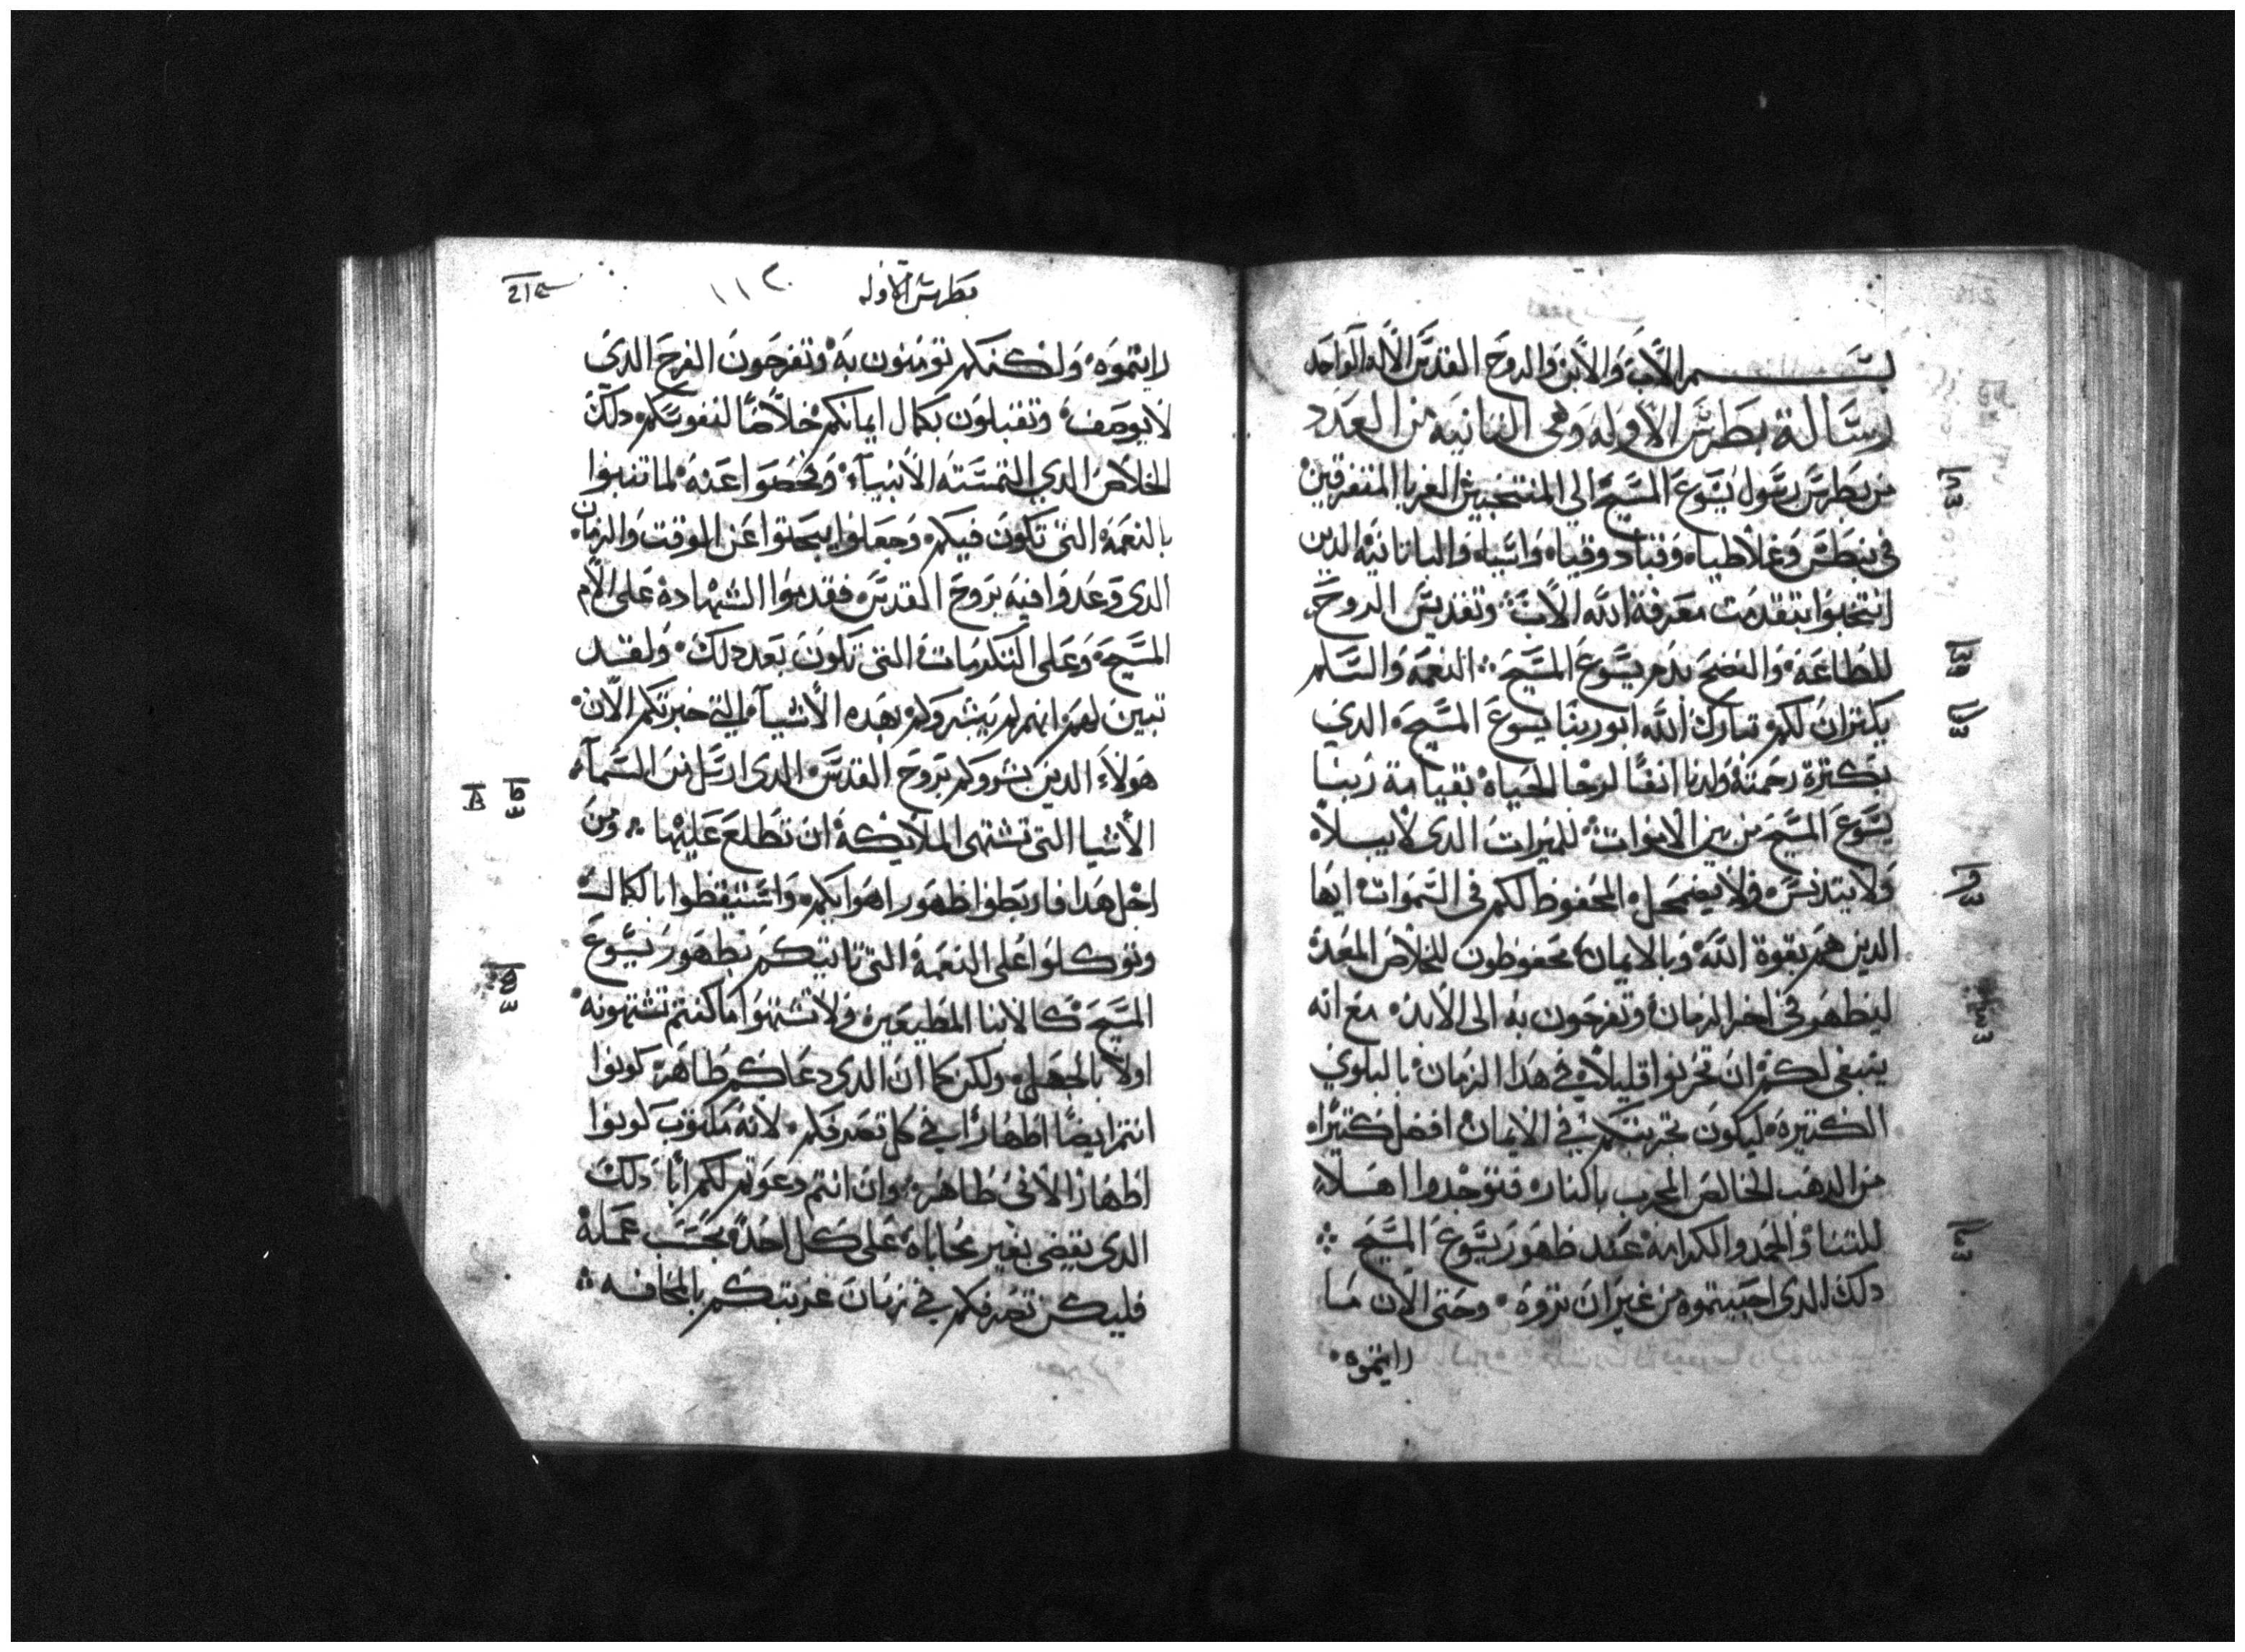 بسم الاب والابن والروح القدس الاله الواحد
رسالة بطرس الاوله وهى التانيه من العدد
من بطرس رسول يسوع المسيح الي المنتخبين الغربا المتفرقين
في بنطس وغلاطياه وقبادوقياه واسياه والباتانيه الدين
انتخبوا بتقدمت معرفة الله الاب وتقديس الروح
للطاعه والنضح بدم يسوع المسيح النعمه والسلم
يكتران لكم تبارك الله ابو ربنا يسوع المسيح الدي
بكترة رحمته ولدنا انفا لرجا الحياه بقيامة ربنا
يسوع المسيح من بين الاموات للميرات الدى لا يبلا
ولا يتدنس ولا يضمحل المحفوظ لكم فى السموات ايها
الدين هم بقوة الله وبالايمان محفوظون للخلاص المعد
ليظهر في اخر الزمان وتفرحون به الى الابد مع انه
ينبغى لكم ان تحزنوا قليلا في هدا الزمان بالبلوي
الكتيره ليكون تجربتكم في الايمان افضل كتيرا
من الدهب الخالص المجرب بالنار فتوجدوا اهلا
للتنا والمجد والكرامه عند ظهور يسوع المسيح
دلك الدى احببتموه من غير ان تروه وحتى الان ما
رايتموه
بطرس الاوله
١١٢
رايتموه ولكنكم تومنون به وتفرحون الفرح الدى
لا يوصف وتقبلون بكمال ايمانكم خلاصا لنفوسكم دلك
الخلاص الدي التمسته الانبياء وفحصوا عنه لما تنبوا
بالنعمة التى تكون فيكم وجعلوا يبحتوا عن الوقت والزمان
الدى وعدوا فيه بروح القدس فقدموا الشهادة على الام
المسيح وعلى التكرمات التى تكون بعد دلك ولقد
تبين لهم انهم لم يبشروكم بهده الاشيا التي خبرتكم الان
هولاء الدين بشروكم بروح القدس الدى ارسل من السماء
الاشيا التى تشتهى الملايكة ان تطلع عليها ومن
اجل هدا فاربطوا ظهور اهوايكم واستيقظوا بالكمال
وتوكلوا على النعمه التى تاتيكم بظهور يسوع
المسيح كالابنا المطيعين ولا تشتهوا ما كنتم تشتهونه
اولا بالجهل ولكن كما ان الدى دعاكم طاهر كونوا
انتم ايضا اطهارا في كل تصرفكم لانه مكتوب كونوا
اطهارا لانى طاهر وان انتم دعوتم لكم ابا دلك
الدى يقضى بغير محاباه على كل احد بحسب عمله
فليكن تصرفكم في زمان غربتكم بالمخافه